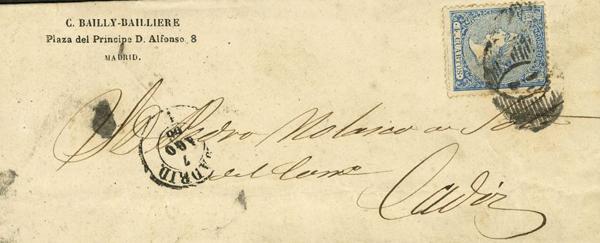 C. BAILLY-BAILLIERE
Plaza del Principe D. Alfonso, 8
MADRID.
4 CUARTOS
Sr. Dn. Pedro Nolasco de
del Com.º
Cadiz
MADRID
7
AGO
66